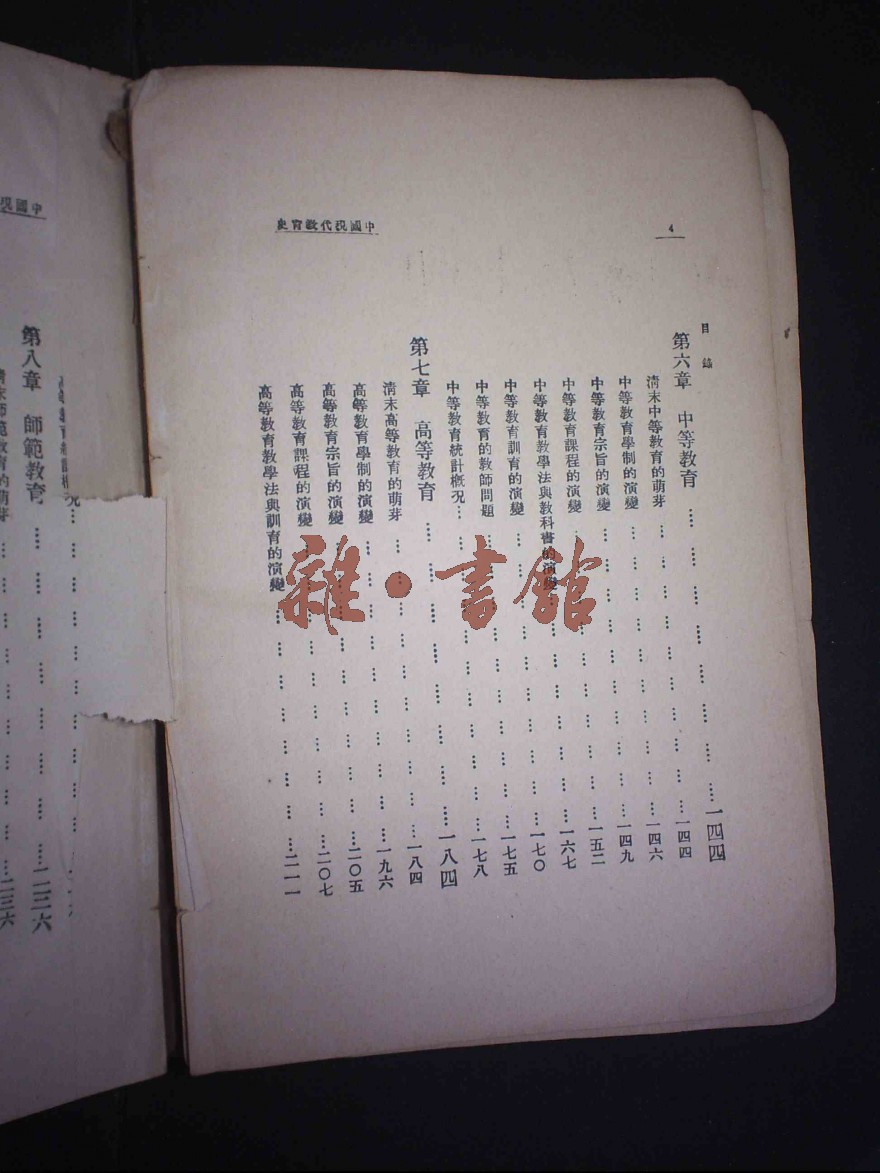 4
中國現代教育史
目錄
第六章 中等教育 …… 一四四
清末中等教育的萌芽 …… 一四四
中等教育學制的演變 …… 一四六
中等教育宗旨的演變 …… 一四九
中等教育課程的演變 …… 一五二
中等教育教學法與教科書的演變 …… 一六七
中等教育訓育的演變 …… 一七〇
中等教育的教師問題 …… 一七五
中等教育統計概況 …… 一七八
第七章 高等教育 …… 一八四
清末高等教育的萌芽 …… 一八四
高等教育學制的演變 …… 一九六
高等教育宗旨的演變 …… 二〇五
高等教育課程的演變 …… 二〇七
高等教育教學法與訓育的演變 …… 二一一
雜·書館
中國現
第八章 師範教育 …… 二三六
清末師範教育的萌芽 …… 二三六